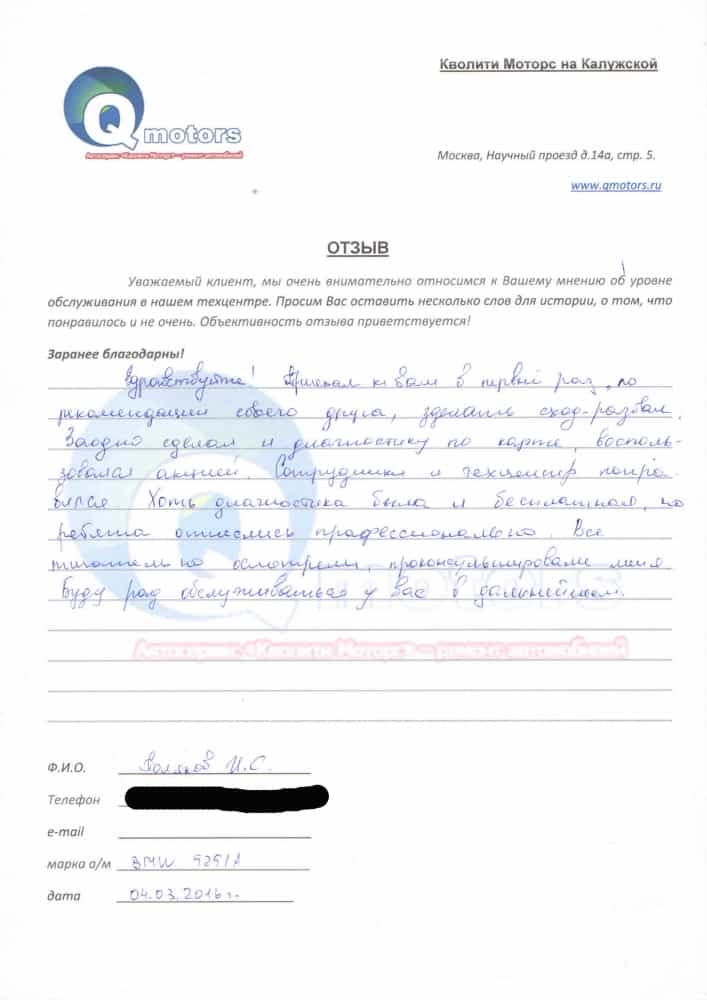 Кволити Моторс на Калужской
Q motors
Автосервис «Кволити Моторс» – ремонт автомобилей
Москва, Научный проезд д.14а, стр. 5.
www.qmotors.ru
ОТЗЫВ
Уважаемый клиент, мы очень внимательно относимся к Вашему мнению об уровне
обслуживания в нашем техцентре. Просим Вас оставить несколько слов для истории, о том, что
понравилось и не очень. Объективность отзыва приветствуется!
Заранее благодарны!
Здравствуйте! Приехал к вам в первый раз, по
рекомендации своего друга, сделать сход-развал.
Заодно сделал и диагностику по карте, восполь-
зовался акцией. Сотрудники и техцентр понра-
вился. Хоть диагностика была и бесплатная, но
ребята отнеслись профессионально. Все
тщательно осмотрели, проконсультировали меня
Буду рад обслуживаться у Вас в дальнейшем.
motors
Автосервис «Кволити Моторс» – ремонт автомобилей
Ф.И.О. Поляков И.С.
Телефон
e-mail
марка а/м BMW
дата 04.03.2016г.